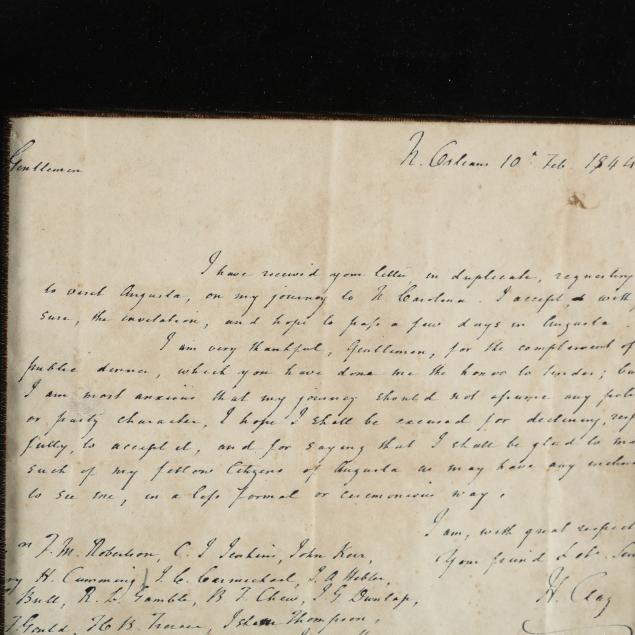 N. Orleans 10th Feb. 1844
Gentlemen
I have received your letter in duplicate, requesting
to visit Augusta, on my journey to N Carolina. I accept, with
sure, the invitation, and hope to pass a few days in Augusta.
I am very thankful, Gentlemen, for the complement of
public dinner, which you have done me the honor to tender; bu
I am most anxious that my journey should not assume any pol
or party character, I hope I shall be excused for declining, resp
fully, to accept it, and for saying that I shall be glad to me
such of my fellow Citizens of Augusta as may have any inclin
to see me, in a less formal or ceremonious way.
I am, with great respect
Your friend & obt. Ser
H. Clay
F. M. Robertson, C. J Jenkins, John Kerr,
H. Cumming, J. C. Carmichael, J. A
Bull, R. L. Gamble, B. F. Chew, J. G Dunlap,
Gould, Thompson,